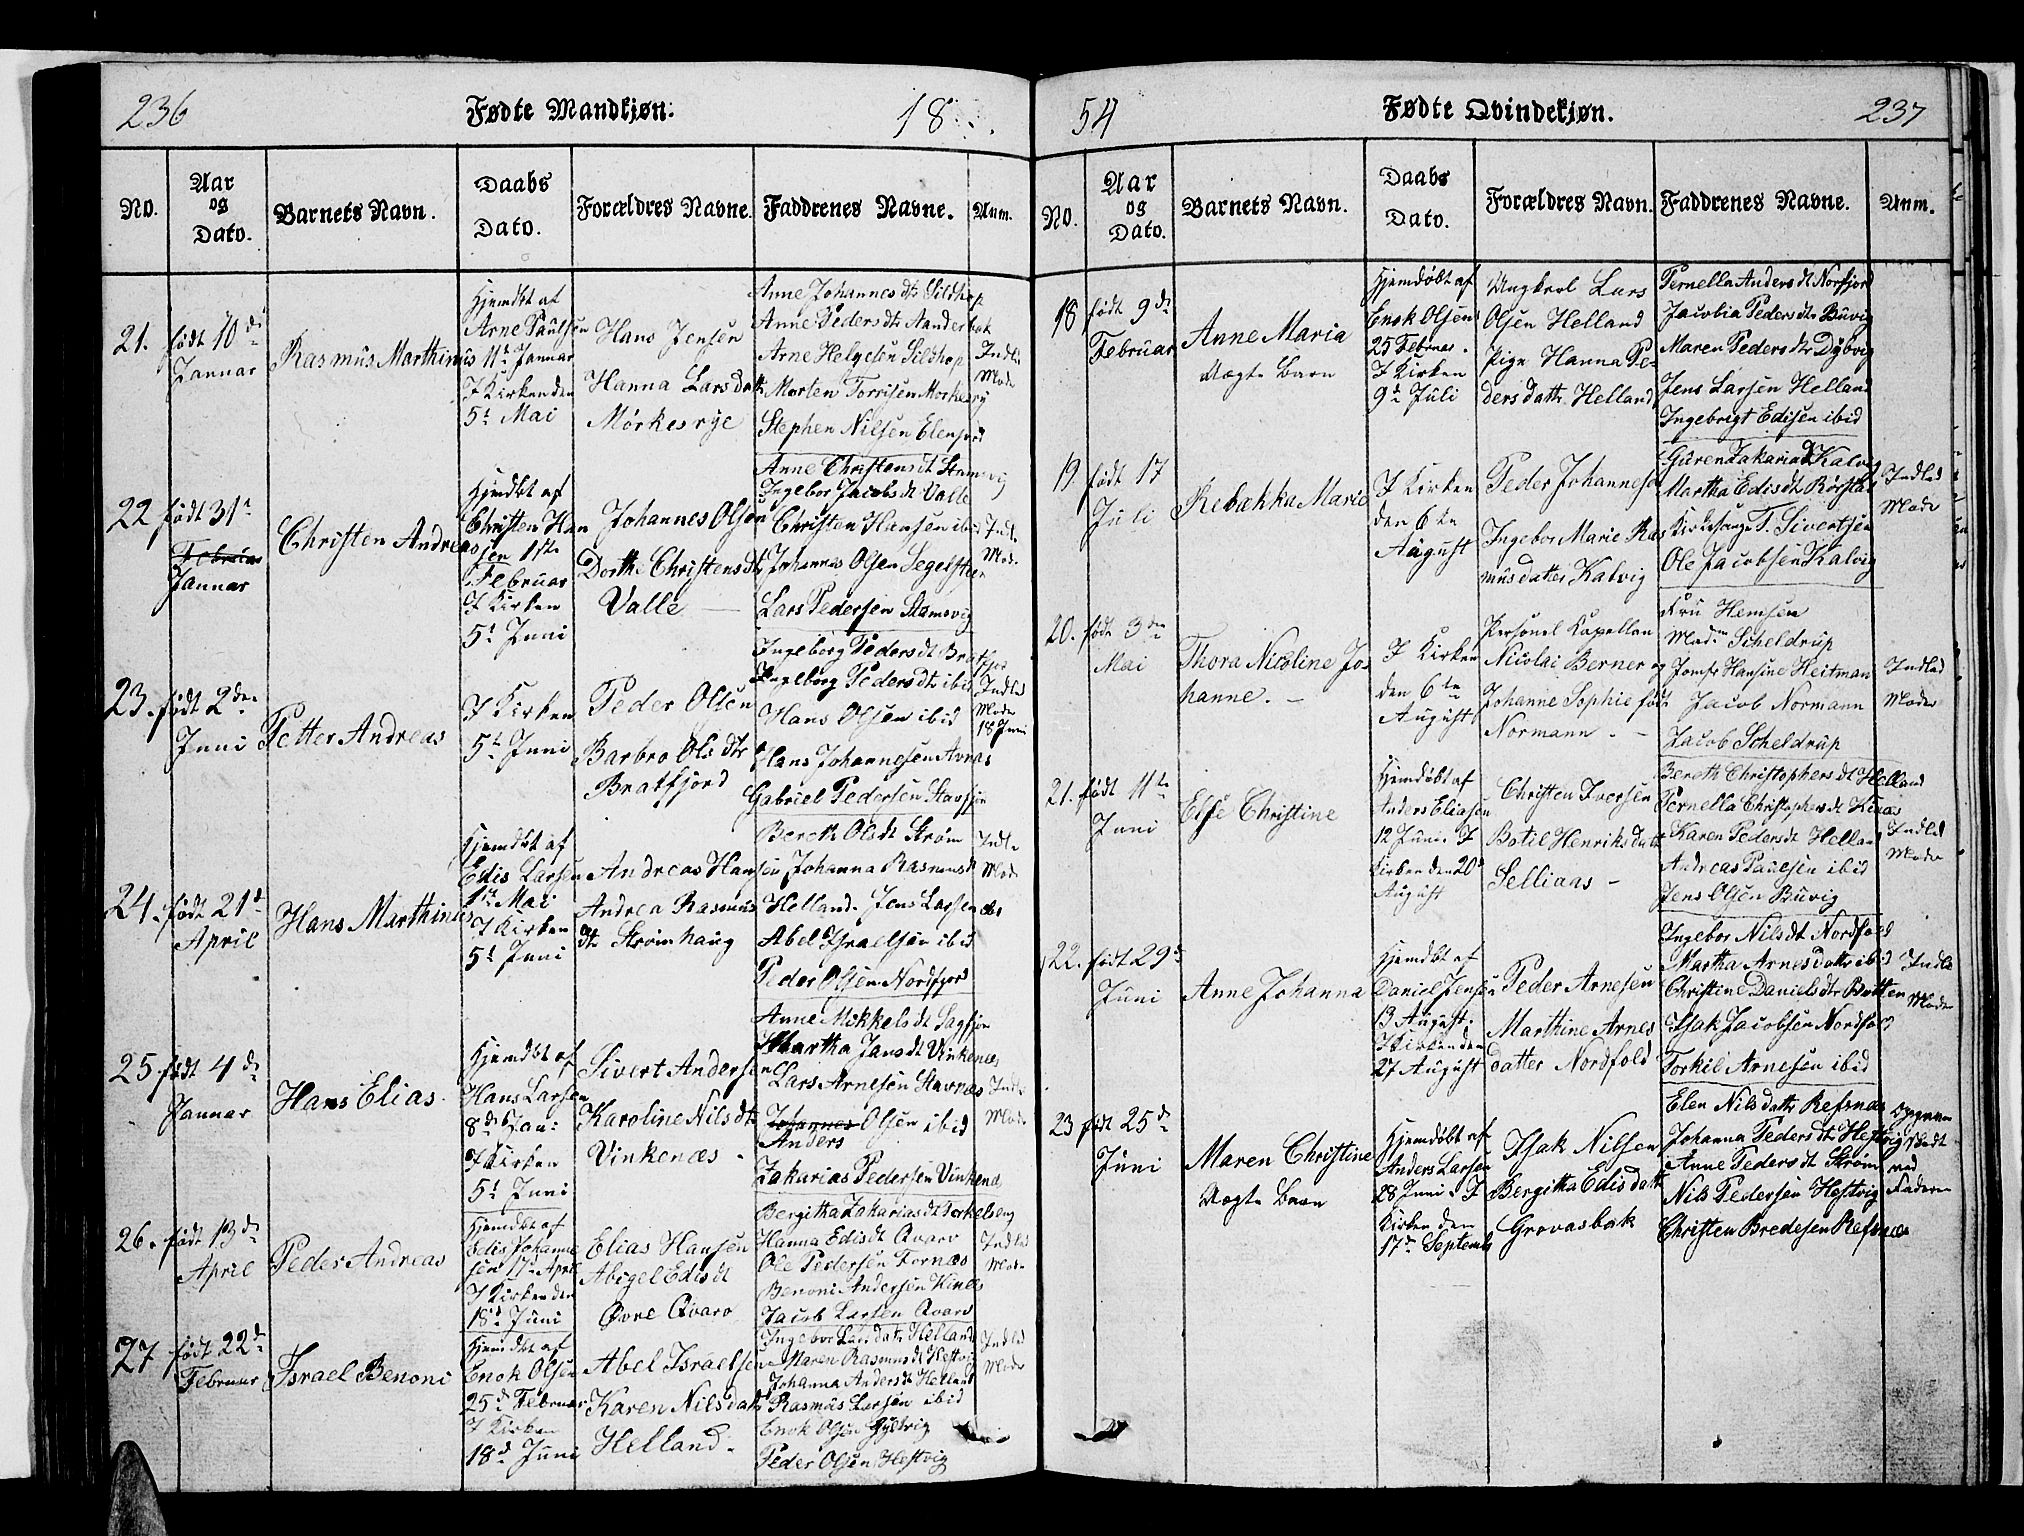 236
Fødte Mandkjøn.
18
No.
Aar
og
Dato.
Barnets Navn.
Daabs
Dato.
Forældres Navne.
Faddrenes Navne.
Anm.
21.
født 10de
Januar
Rasmus Marthinus
Hjemdbt af
Arne Paulsen
11te Januar
I Kirken den
5t Mai
Hans Jensen
Hanna Larsdatt
Mørkesrye
Anne Johannesdtr Sildhop
Anne Pedersdtr Aanderbak
Arne Helgesen Sildhop
Morten Torrisen Morkesry
Stephen Nilsen Elenjord
Indl.
Mode
22
født 31te
Februar
Januar
Christen Andreas
Hjemdbt af
Christen Han
sen 1ste
Februar
I Kirken
5t Juni
Johannes Olsen
Dorthe Christensdt
Valle
Anne Christensdt Stamsvig
Ingebor Jacobsdt Valle
Christen Hansen ibid
Johannes Olsen Segelsteen
Lars Pedersen Stamsvig
Indl.
Mod.
23.
født 2den
Juni
Petter Andreas
I Kirken
5te Juni
Peder Olsen
Barbro Olsdtr
Bratfjord
Ingeborg Pedersdt Bratfjor
Ingeborg Pedersdtr ibid
Hans Olsen ibid
Hans Johannesen Avnas
Gabriel Pedersen Stavfjor
Indled
Mode
18 Juni
24.
født 21de
April
Hans Marthinus
Hjemdbt af
Edis Larsen
1ste Mai
I Kirken
5t Juni
Andreas Hansen
Andrea Rasmus
dtr Strømhaug
Bereth Olsdt Strøm
Johanna Rasmusdt
Helland. Jens Larsen
Abel Israelsen ibid
Peder Olsen Nordfjord
Indl.
Mode
25
født 4de
Januar
Hans Elias
Hjemdbt af
Hans Larsen
8de Jan:
I Kirken
5t Juni
Sivert Andersen
Karoline Nilsdtr
Vinkenæs
Anne Mikkelsdt Sagfjor
Martha Jansdt Vinkenæs
Lars Arnesen Stavnæs
Johannes Olsen ibid
Anders
Zakarias Pedersen Vinkenæs
Indl.
Mode
26.
født 13de
April
Peder Andreas
Hjemdbt af
Edis Johanne
sen 17de April
I Kirken den
18de Juni
Elias Hansen
Abigel Edisdt
Øvre Qvaro
Bergitha Zakariasdt Torkelseng
Hanna Edisdt Qvarv
Ole Pedersen Fornæs
Benoni Andersen Kines
Jacob Larsen Qvarv
Indled
Mode
27
født 22de
Februar
Israel Benoni
Hjemdbt af
Enok Olsen
25de Februar
I Kirken
18de Juni
Abel Israelsen
Karen Nilsdatt
Helland
Ingebor Larsdatr Helland
Maren Rasmusdt Hestvig
Johanna Andersdt Helland
Rasmus Larsen ibid
Enok Olsen
Peder Olsen Hestvig
Indled
Mode
54
Fødte Qvindekjøn.
237
No.
Aar
og
Dato.
Barnets Navn.
Daabs
Dato.
Forældres Navn.
Faddrenes Navne.
Anm.
18
født 9de
Februar
Anne Maria
Uægte Barn
Hjemdøbt af
Enok Olsen
25 Februar
I Kirken
9de Juli
Ungkarl Lars
Olsen Helland
Pige Hanna Pe-
dersdattr Helland
Pernella Andersdt Norfjord
Jacobia Pedersdtr Buvig
Maren Pedersdtr Dybvig
Jens Larsen Helland
Ingebrigt Edisen ibid
19.
født 17
Juli
Rebahkka Marie
I Kirken
den 6te
August
Peder Johannesen
Ingebor Marie Ras
musdatter Kalvig
Guren Zakariad Kalvig
Martha Edisdt Rørstad
Kirkesanger T. Sivertsen
Ole Jacobsen Kalvig
Indled
Mode
20.
født 3den
Mai
Thora Nicoline Jo
hanne.
I Kirken
den 6te
August
Personel Kapellan
Nicolai Berner og
Johanne Sophie født
Normann
Fru Hemsen
Madm Scheldrup
Jomfr Hansine Heitman
Jacob Normann
Jacob Scheldrup
Indled
Moder
21.
født 11te
Juni
Else Christine
Hjemdøbt af
Anders Eliasen
12 Juni. I
Kirken den 20de
August
Christen Iversen
Botil Henriksdatt
Selliaas
Bereth Christophersdt Helland
Pernella Christophersdt Kines
Karen Pedersdt Helland
Andreas Paulsen ibid
Jens Olsen Buvig
Indled
Mode
22.
født 29de
Juni
Anne Johanna
Hjemdbt af
Daniel Jensen
13 August.
I Kirken den
27 August
Peder Arnesen
Marthine Arnes
datter Nordfold
Ingebor Nilsdt Nordfold
Martha Arnesdattr ibid
Christine Danielsdtr Botten
Isak Jacobsen Nordfold
Torkil Arnesen ibid
Indled
Mode
23
født 25de
Juni
Maren Christine
Uægte Barn
Hjemdøbt af
Anders Larsen
28 Juni. I
Kirken den
17de Septembr
Isak Nilsen
Bergitta Edisdatt
Grovasbak
Elen Nilsdattr Refsnæs
Johanna Pedersdtr Hestvig
Anne Pedersdt Strøm
Nils Pedersen Hestvig
Christen Bredesen Refsnæs
ved
Faderen